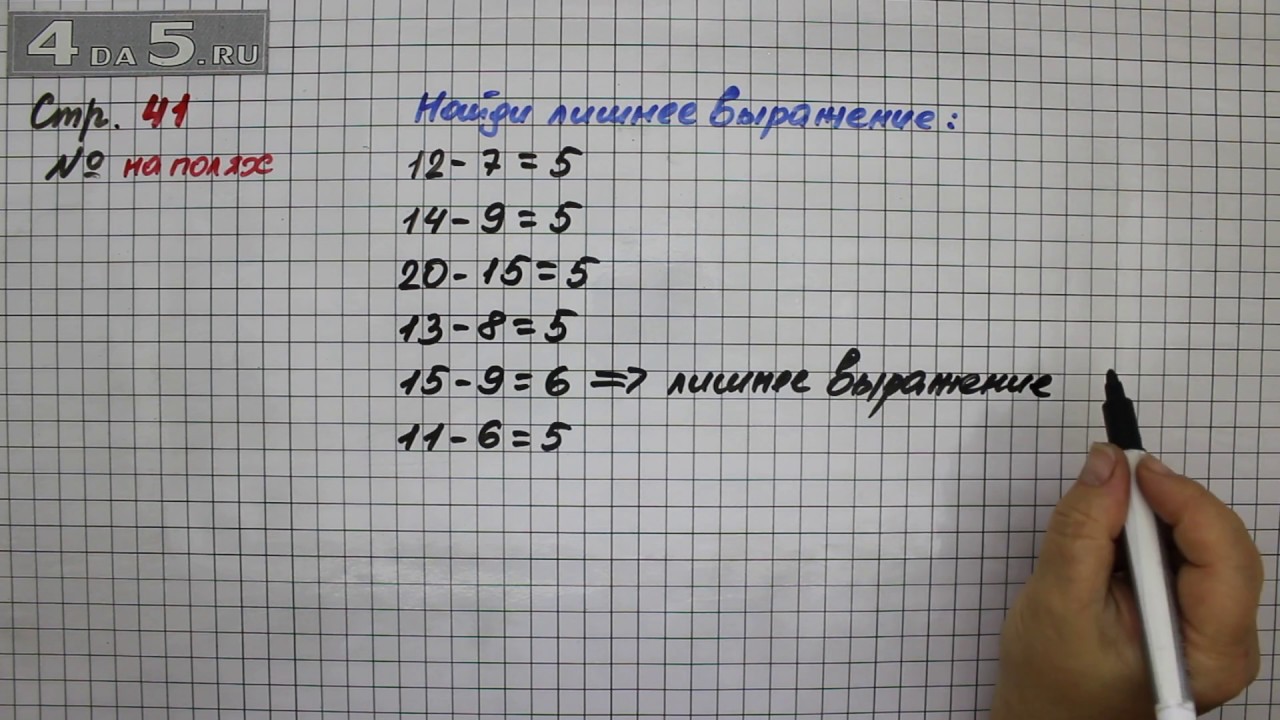 4 DA 5.RU
Стр. 41
№ на полях
Найди лишнее выражение:
12 - 7 = 5
14 - 9 = 5
20 - 15 = 5
13 - 8 = 5
15 - 9 = 6 => лишнее выражение
11 - 6 = 5